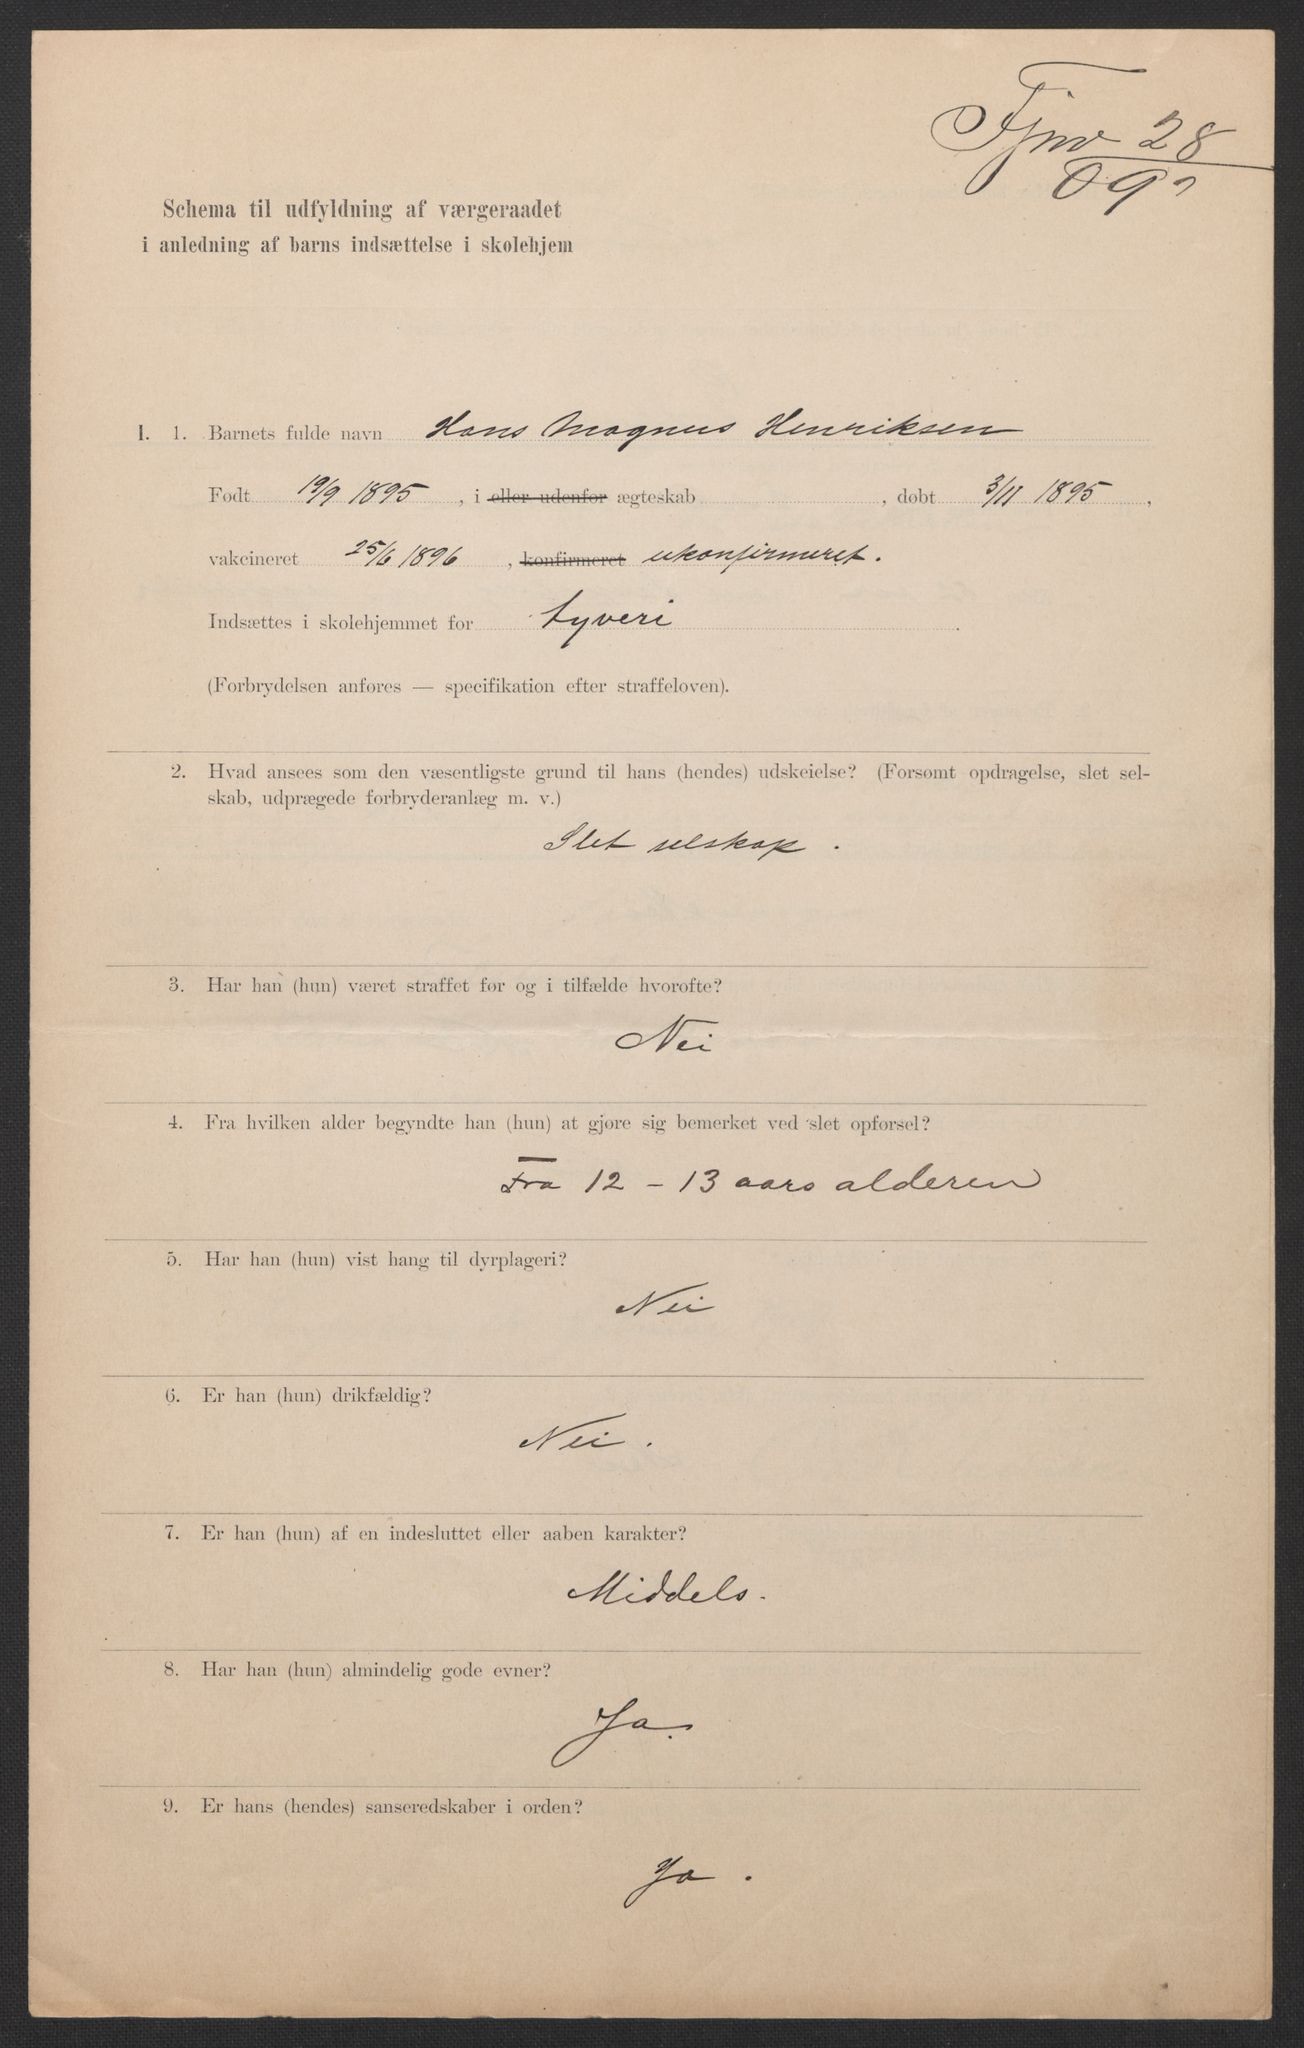 28
09
Schema til udfyldning af værgeraadet
i anledning af barns indsættelse i skolehjem
I. 1. Barnets fulde navn Hans Magnus Henriksen
Født 19/9 1895, i eller udenfor ægteskab, døbt 3/11 1895,
vakcineret 25/6 1896, konfirmeret ukonfirmeret.
Indsættes i skolehjemmet for tyveri.
(Forbrydelsen anføres — specifikation efter straffeloven).
2. Hvad ansees som den væsentligste grund til hans (hendes) udskeielse? (Forsømt opdragelse, slet sel-
skab, udprægede forbryderanlæg m. v.)
Slet selskap.
3. Har han (hun) været straffet før og i tilfælde hvorofte?
Nei
4. Fra hvilken alder begyndte han (hun) at gjøre sig bemerket ved slet opførsel?
Fra 12 – 13 aars alderen
5. Har han (hun) vist hang til dyrplageri?
Nei
6. Er han (hun) drikfældig?
Nei.
7. Er han (hun) af en indesluttet eller aaben karakter?
Middels.
8. Har han (hun) almindelig gode evner?
Ja.
9. Er hans (hendes) sanseredskaber i orden?
Ja.